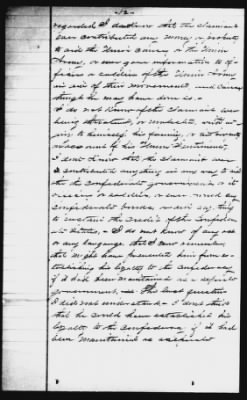 -12-
regarded I don't know that the claimant
ever contributed any money or property
to aid the Union cause, or the Union
Army, or ever gave information to of-
ficers or soldiers of the Union Army
in aid of their movement, and cause
though he may have done so.
I do not know of the claimant ever
being threatened, or molested, with in-
jury to himself, his family, or his property
on account of his Union Sentiments.
I don't know that the claimant ever
contributed anything in any way to aid
the Confederate government, or its
officers or soldiers, or ever owned any
Confederate bonds, or did any thing
to sustain the credit of the Confeder-
ate States. I do not know of any act
or any language that I now remember
that might have prevented him from es-
tablishing his loyalty to the Confederacy
if it had been maintained as a separate
government. The last question
I did not understand. I don't think
that he could have established his
loyalty to the Confederacy if it had
been maintained as separate